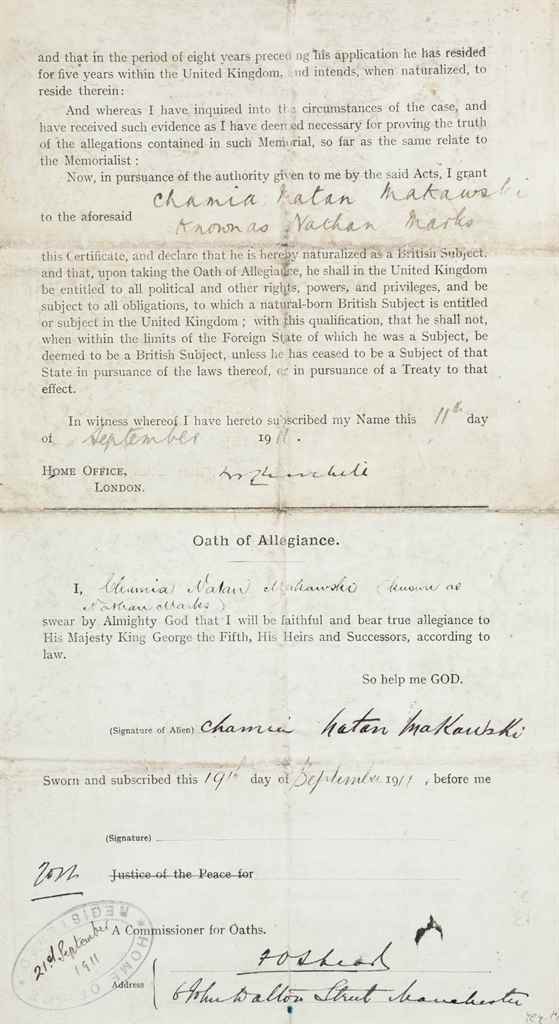 and that in the period of eight years preceding his application he has resided
for five years within the United Kingdom, and intends, when naturalized, to
reside therein:
And whereas I have inquired into the circumstances of the case, and
have received such evidence as I have deemed necessary for proving the truth
of the allegations contained in such Memorial, so far as the same relate to
the Memorialist :
Now, in pursuance of the authority given to me by the said Acts, I grant
to the aforesaid Chamia Natan Makawski
known as Nathan Marks
this Certificate, and declare that he is hereby naturalized as a British Subject,
and that, upon taking the Oath of Allegiance, he shall in the United Kingdom
be entitled to all political and other rights, powers, and privileges, and be
subject to all obligations, to which a natural-born British Subject is entitled
or subject in the United Kingdom ; with this qualification, that he shall not,
when within the limits of the Foreign State of which he was a Subject, be
deemed to be a British Subject, unless he has ceased to be a Subject of that
State in pursuance of the laws thereof, or in pursuance of a Treaty to that
effect.
In witness whereof I have hereto subscribed my Name this 11th day
of September 1911.
HOME OFFICE,
LONDON.
Oath of Allegiance.
I, Chamia Natan Makawski (known as
Nathan Marks)
swear by Almighty God that I will be faithful and bear true allegiance to
His Majesty King George the Fifth, His Heirs and Successors, according to
law.
So help me GOD.
(Signature of Alien) Chamia Natan Makawski
Sworn and subscribed this 19th day of September 1911, before me
(Signature)
Justice of the Peace for
A Commissioner for Oaths.
HOME OFFICE REGIST
21st September
1911
Address 6 John Dalton Street Manchester